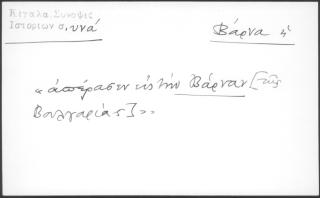 Κιγάλα, Σύνοψις
Ιστοριών σ. υνά
Βάρνα ἡ
«ἀπέρασεν εἰς τὴν Βάρναν [τῆς
Βουλγαρίας]».